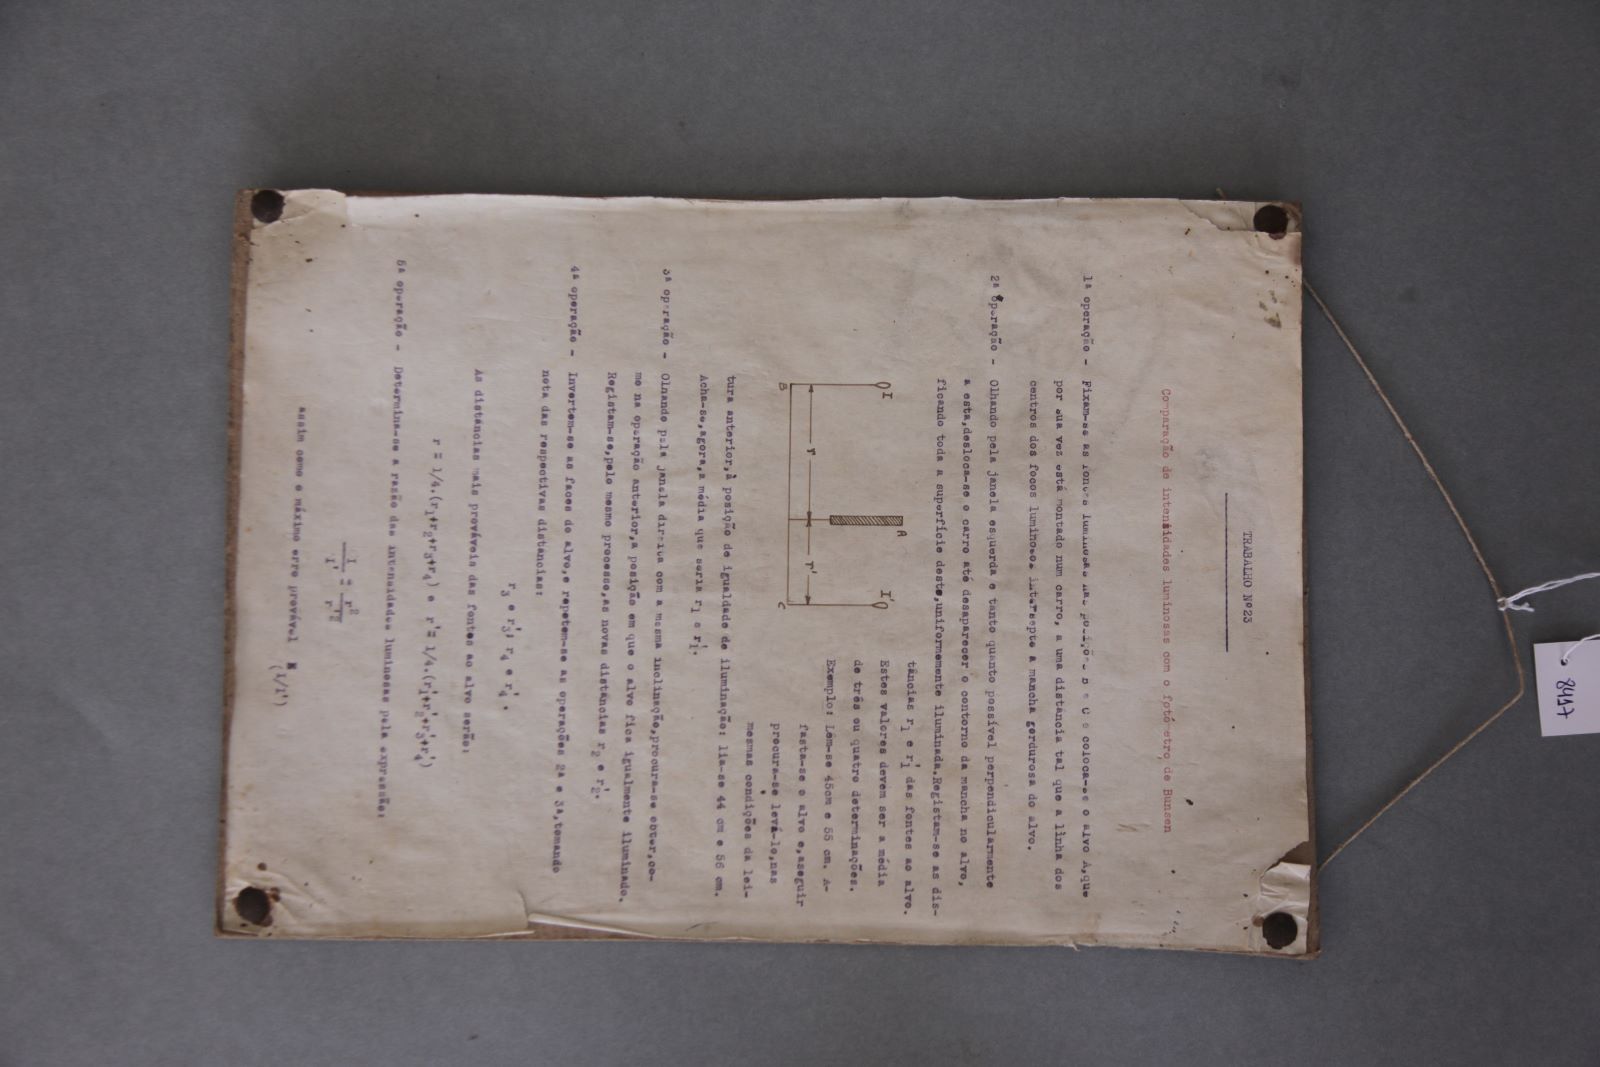 TRABALHO Nº23
Comparação de intensidades luminosas com o fotómetro de Bunsen
1ª operação - Fixam-se as fontes luminosas nas posições B e C e coloca-se o alvo A,que
por sua vez está montado num carro, a uma distância tal que a linha dos
centros dos focos luminosos intersepte a mancha gordurosa do alvo.
2ª operação - Olhando pela janela esquerda e tanto quanto possível perpendicularmente
a esta,desloca-se o carro até desaparecer o contorno da mancha no alvo,
ficando toda a superfície deste,uniformemente iluminada.Registam-se as dis-
tâncias r1 e r'1 das fontes ao alvo.
Estes valores devem ser a média
de três ou quatro determinações.
Exemplo: Lêm-se 45cm e 55 cm. A-
fasta-se o alvo e,aseguir
procura-se levá-lo,nas
mesmas condições da lei-
I
A
I'
r
r'
B
C
tura anterior,à posição de igualdade de iluminação: lia-se 44 cm e 56 cm.
Acha-se,agora,a média que seria r1 e r'1.
3ª operação - Olhando pela janela direita com a mesma inclinação,procura-se obter,co-
mo na operação anterior,a posição em que o alvo fica igualmente iluminado.
Registam-se,pelo mesmo processo,as novas distâncias r2 e r'2.
4ª operação - Invertem-se as faces do alvo,e repetem-se as operações 2ª e 3ª,tomando
nota das respectivas distâncias:
r3 e r'3; r4 e r'4.
As distâncias mais prováveis das fontes ao alvo serão:
r = 1/4.(r1+r2+r3+r4) e r'= 1/4.(r'1+r'2+r'3+r'4)
5ª operação - Determina-se a razão das intensidades luminosas pela expressão:
I/I' = r²/r'²
assim como o máximo erro provável (I/I')
8417